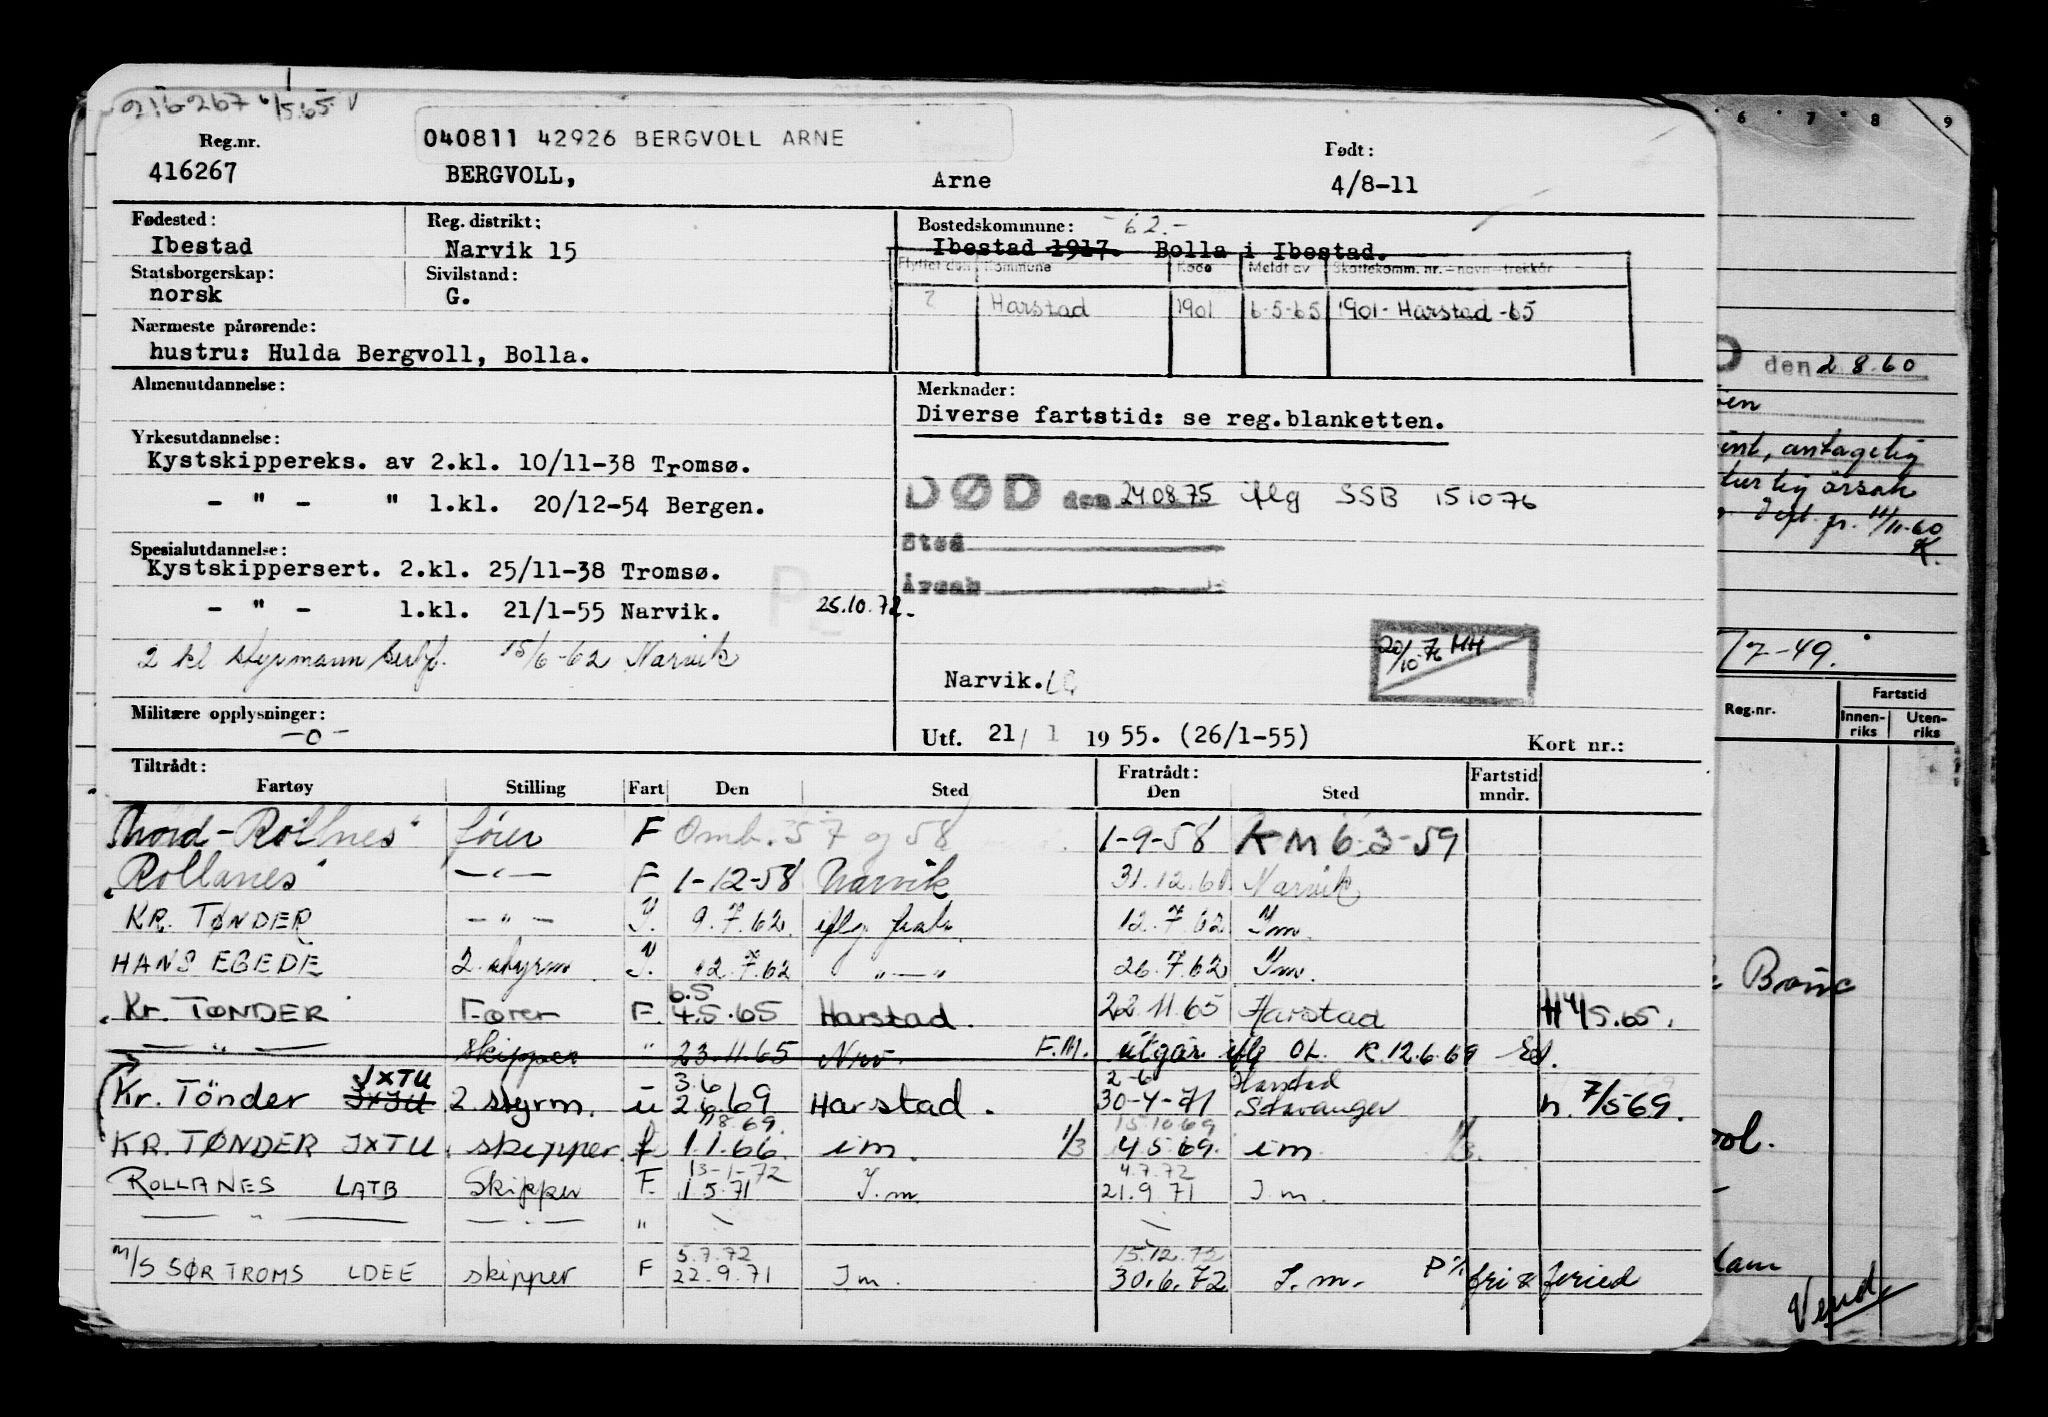 416267 6/5 65 V
040811 42926 BERGVOLL ARNE
Reg.nr.
416267
BERGVOLL,
Arne
Født:
4/8-11
Fødested:
Ibestad
Reg. distrikt:
Narvik 15
Bostedskommune: -62.-
Ibestad 1917. Bolla i Ibestad.
Statsborgerskap:
norsk
Sivilstand:
G.
Flyttet den Kommune Kode Meldt av Skattekomm. nr. - navn - trekkår
? Harstad 1901 6-5-65 1901 - Harstad -65
Nærmeste pårørende:
hustru: Hulda Bergvoll, Bolla.
Almenutdannelse:
Merknader:
Diverse fartstid: se reg.blanketten.
Yrkesutdannelse:
Kystskippereks. av 2.kl. 10/11-38 Tromsø.
- " - " 1.kl. 20/12-54 Bergen.
DØD den 240875 iflg SSB 151076
Sted
Årsak
Spesialutdannelse:
Kystskippersert. 2.kl. 25/11-38 Tromsø.
- " - 1.kl. 21/1-55 Narvik. 25.10.72.
2 kl styrmann sertf. 15/6-62 Narvik
20/10-76 MH
Narvik.
Militære opplysninger:
-o-
Utf. 21/ 1 1955. (26/1-55)
Kort nr.:
Tiltrådt:
Fartøy Stilling Fart Den Sted
Fratrådt:
Den Sted
Fartstid mndr.
Nord-Rollnes" fører F Omb. 57 og 58 1-9-58 KM 6.3-59
"Rollanes" -"- F 1-12-58 Narvik 31.12.61 Narvik
KR. TØNDER -"- 9.7.62. iflg 12.7.62 Im.
HANS EGEDE 2. styrm 12.7.62 "-" 26.7.62 Im.
6.5
Kr. TØNDER Fører F. 4.5.65 Harstad. 22.11.65 Harstad H 4/5.65.
-"- skipper " 23.11.65 Nrv. F.M. utgår iflg OL. K.12.6.69
JXTU 3.6 2-6 Harstad
Kr. Tönder 2. styrm. u 2.6.69 Harstad. 30-4-71 Stavanger n. 7/5 69.
11 8 69. 15.10 69
KR. TØNDER JXTU skipper. f 1.1.66. im. 1/3 4.5.69. im 1/3.
13-1-72 4.7.72
ROLLANES LATB Skipper F. 1 5.71 I.m. 21.9 71 I.m.
-"- -"- "
5.7.72 15.12.72
M/S SØR TROMS LDEE skipper F 22.9.71 Im. 30.6.72 I.m. fri & feried
6 7 8 9
D den 2 8.60
int, antagelig
årsak
11/11-60
K.
/7-49.
Reg.nr.
Fartstid
Innen-riks Uten-riks
Vend